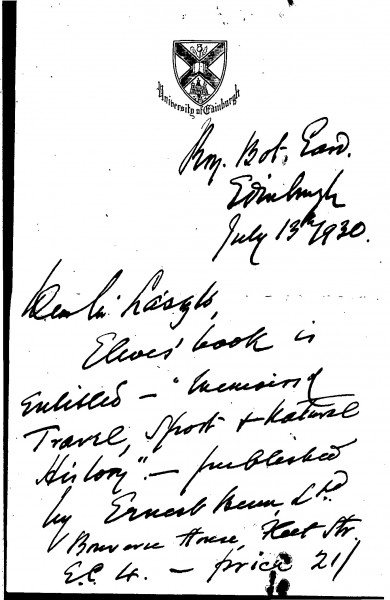 University of Edinburgh
Roy. Bot. Gard.
Edinburgh
July 13th 1930.
Dear Mr László,
Elwes' book is
entitled – "Memoirs of
Travel, Sport & Natural
History" – published
by Ernest Benn Ltd
Bouverie House, Fleet Str.
E.C. 4. – price 21/